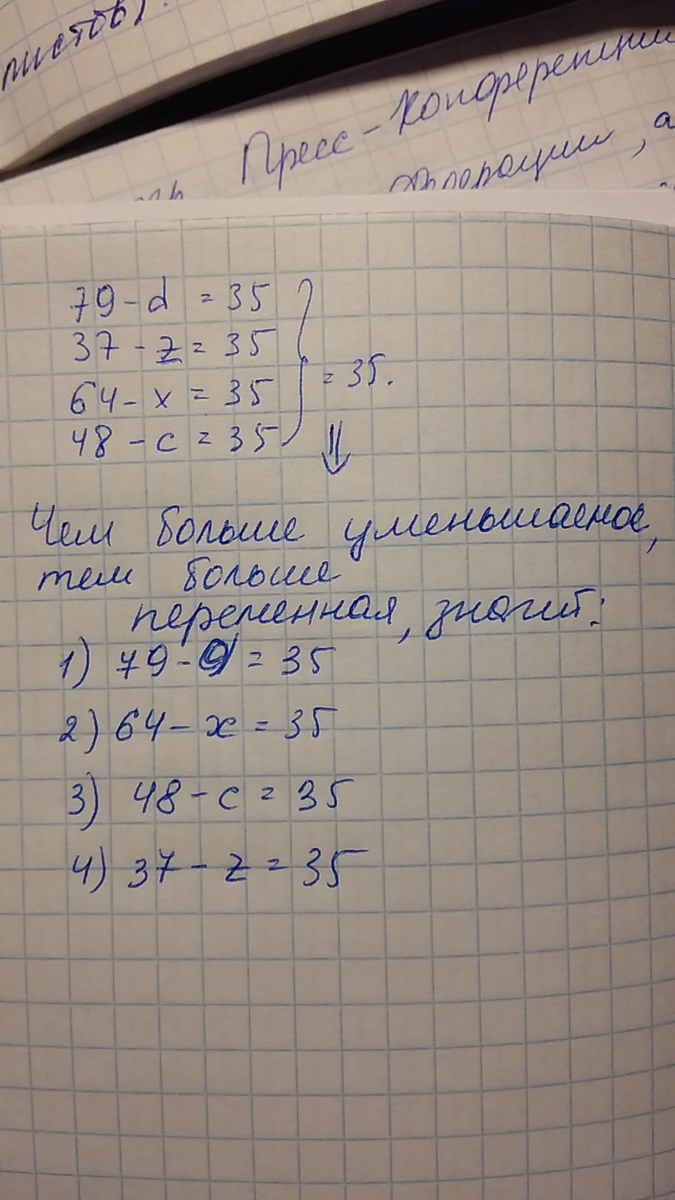 листов).
Пресс-конференции
, а
79 - d = 35
37 - z = 35
64 - x = 35
48 - c = 35
= 35.
⇓
Чем больше уменьшаемое,
тем больше
переменная, значит:
1) 79 - d = 35
2) 64 - x = 35
3) 48 - c = 35
4) 37 - z = 35